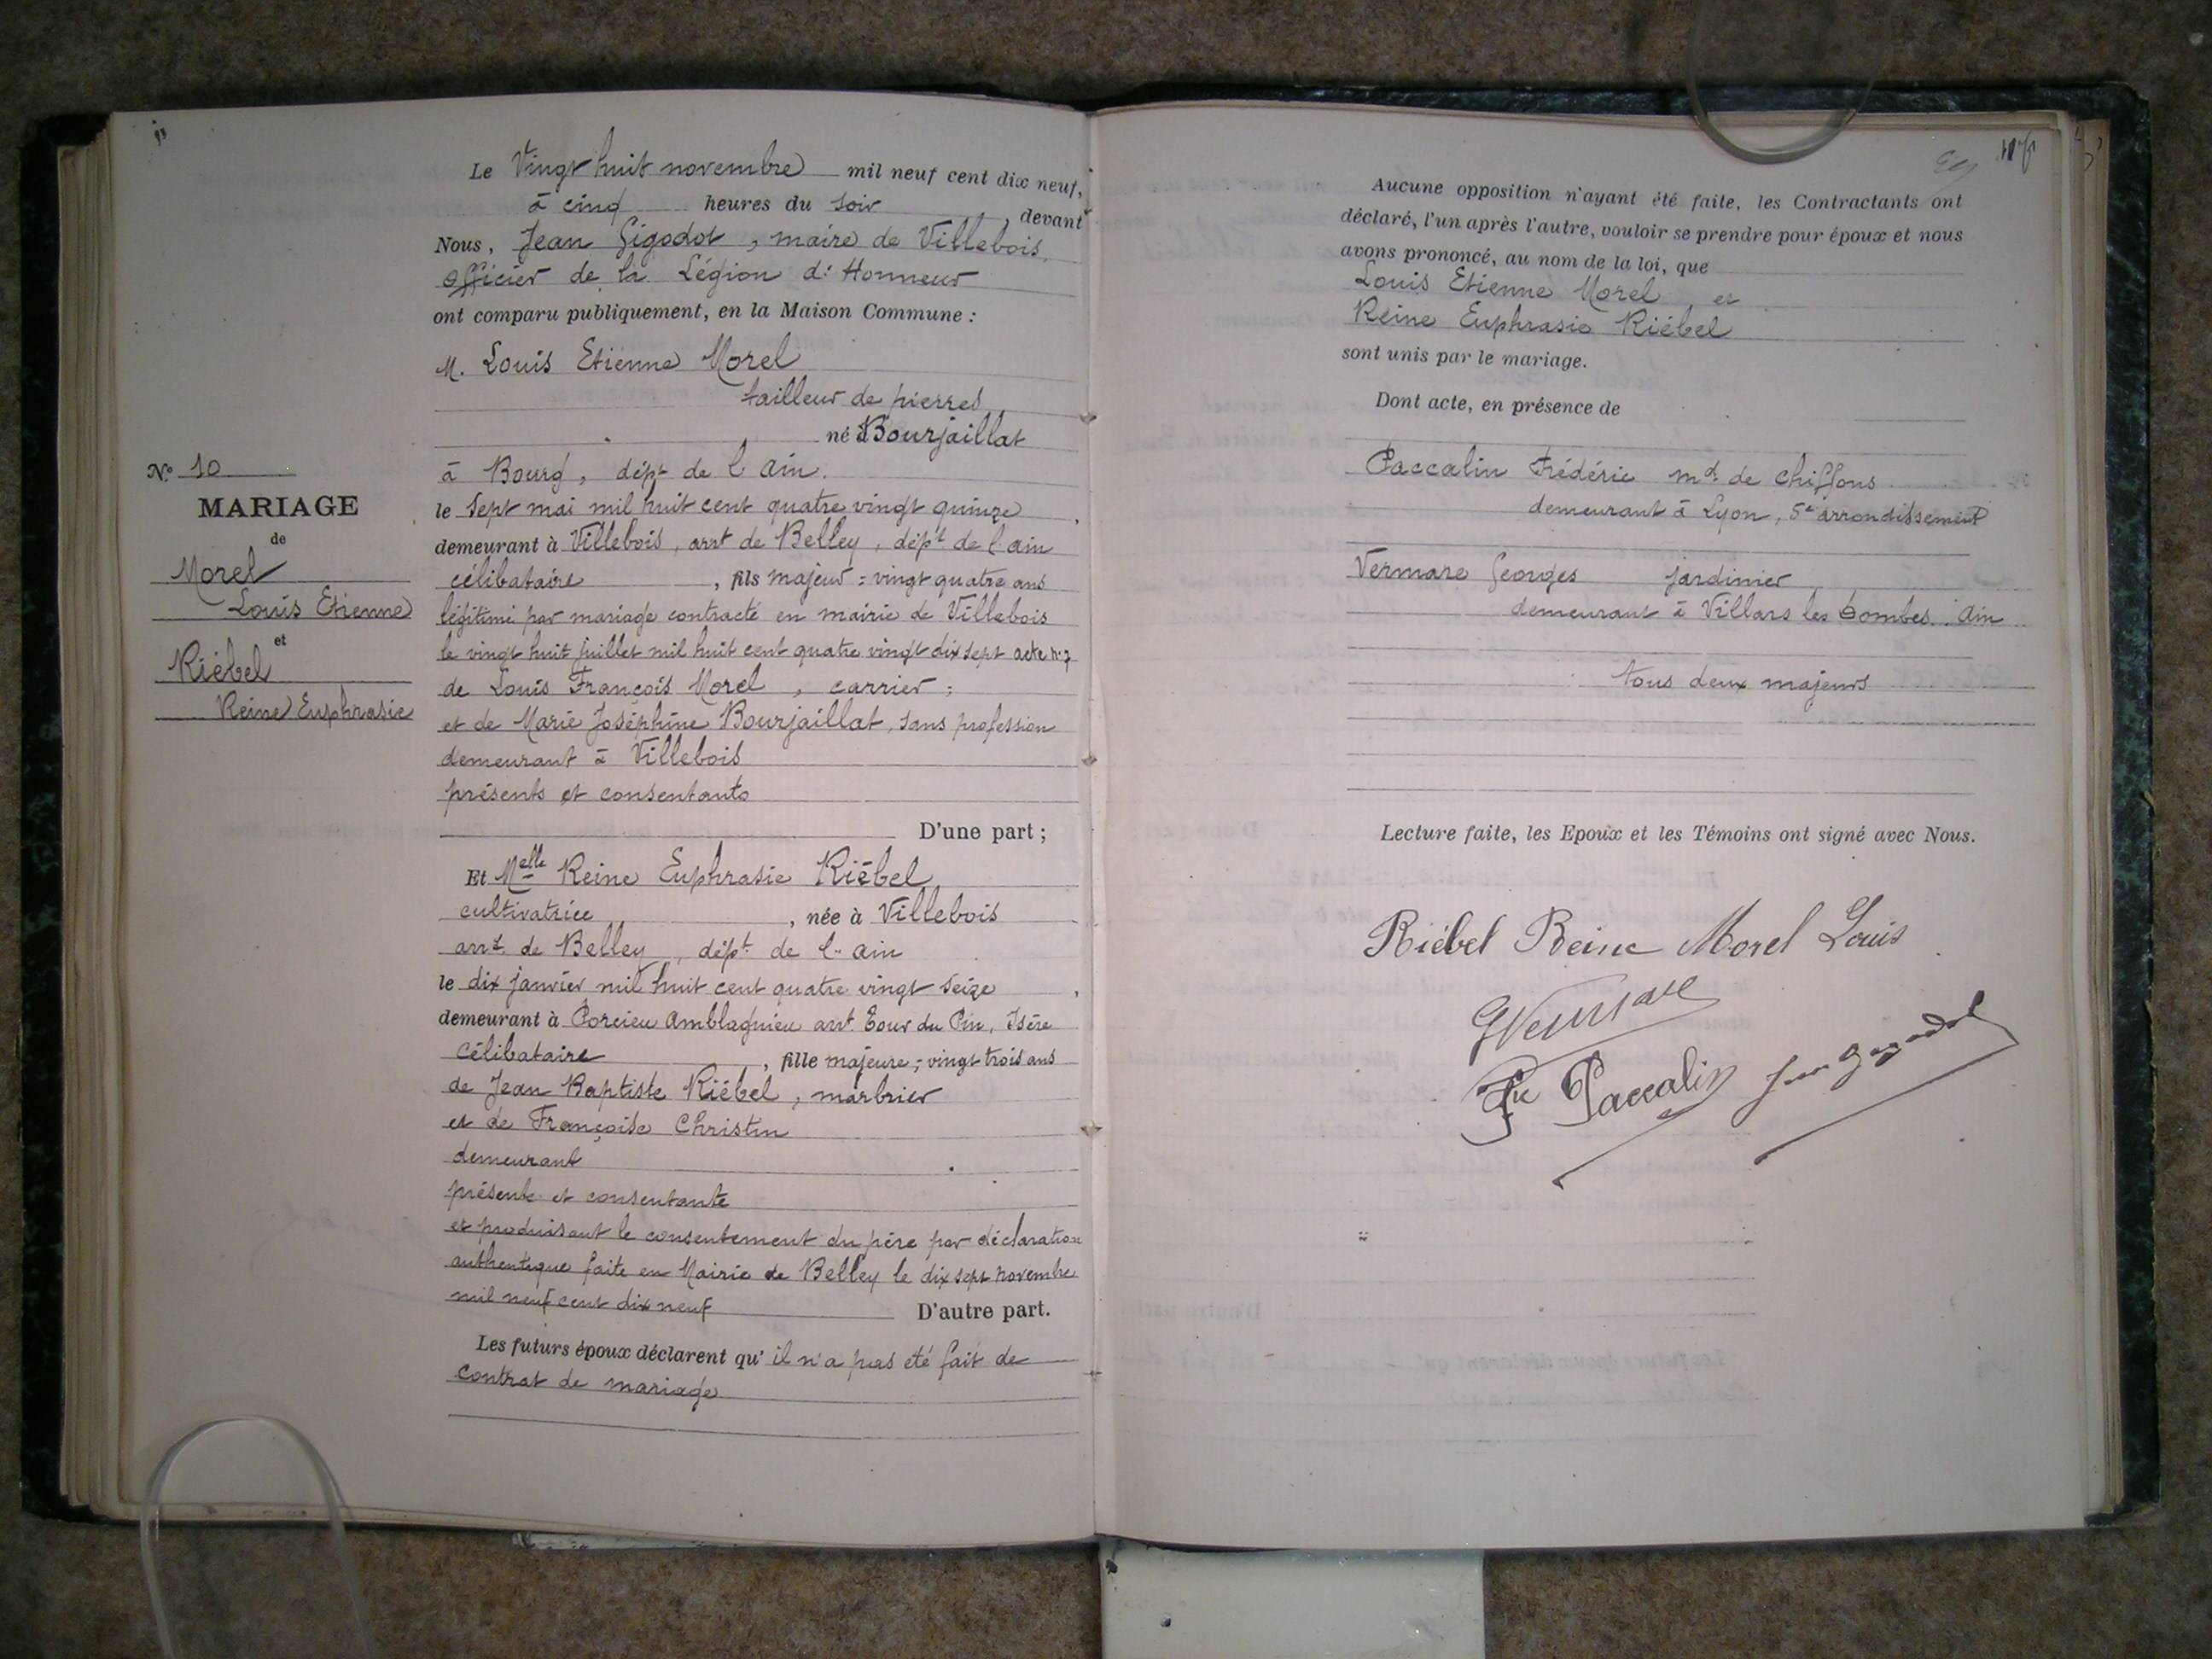 Le Vingt huit novembre mil neuf cent dix neuf,
à cinq heures du soir, devant
Nous, Jean Gigodot, maire de Villebois
officier de la Légion d'Honneur
ont comparu publiquement, en la Maison Commune :
M. Louis Etienne Morel
tailleur de pierres
né Bourjaillat
à Bourg, dépt de l'ain.
le sept mai mil huit cent quatre vingt quinze,
demeurant à Villebois, arrt de Belley, dépt de l'ain
célibataire, fils majeur = vingt quatre ans
légitimé par mariage contracté en mairie de Villebois
le vingt huit juillet mil huit cent quatre vingt dix sept acte n°7
de Louis François Morel, carrier ;
et de Marie Joséphine Bourjaillat, sans profession
demeurant à Villebois
présents et consentants
D'une part ;
Et Melle Reine Euphrasie Riébel
cultivatrice, née à Villebois
arrt de Belley, dépt de l'ain
le dix janvier mil huit cent quatre vingt seize,
demeurant à Porcieu Amblagnieu arrt Tour du Pin, Isère
célibataire, fille majeure ; vingt trois ans
de Jean Baptiste Riébel, marbrier
et de Françoise Christin
demeurant
présente et consentante
et produisant le consentement du père par déclaration
authentique faite en Mairie de Belley le dix sept novembre
mil neuf cent dix neuf D'autre part.
Les futurs époux déclarent qu'il n'a pas été fait de
contrat de mariage
N° 10
MARIAGE
de
Morel
Louis Etienne
et
Riébel
Reine Euphrasie
Aucune opposition n'ayant été faite, les Contractants ont
déclaré, l'un après l'autre, vouloir se prendre pour époux et nous
avons prononcé, au nom de la loi, que
Louis Etienne Morel, et
Reine Euphrasie Riébel
sont unis par le mariage.
Dont acte, en présence de
Paccalin Frédéric md de chiffons
demeurant à Lyon, 5e arrondissement
Vermare Georges jardinier
demeurant à Villars les Dombes. Ain
tous deux majeurs
Lecture faite, les Epoux et les Témoins ont signé avec Nous.
Riébel Reine Morel Louis
G Vermare
Fc Paccalin Jean Gigodot